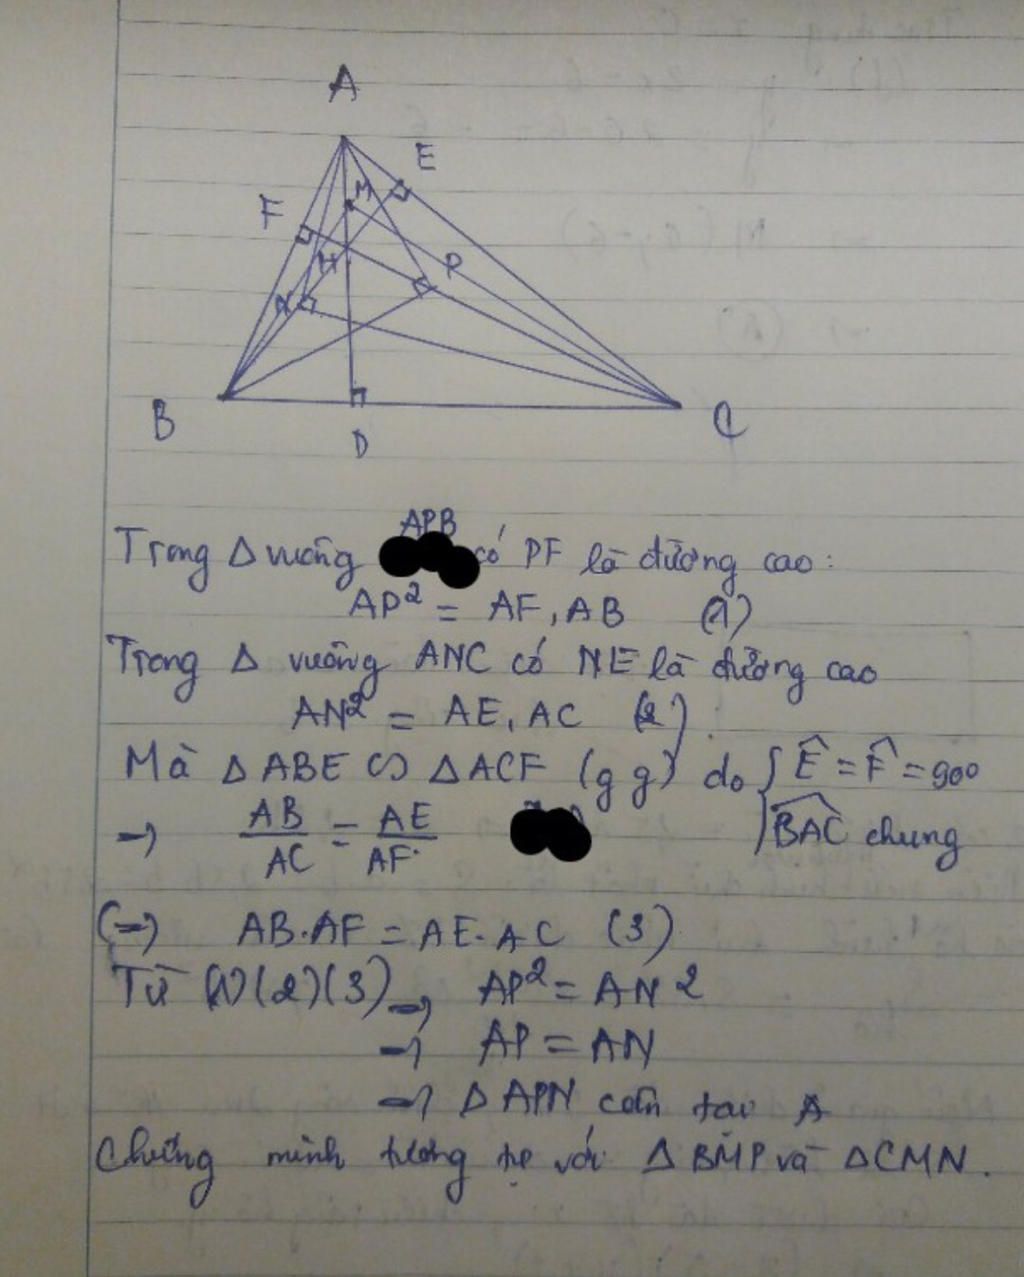 A
E
M
F
H
P
N
B
D
C
APB
Trong Δ vuông có PF là đường cao:
AP² = AF . AB (1)
Trong Δ vuông ANC có NE là đường cao
AN² = AE . AC (2)
Mà Δ ABE ∽ Δ ACF (g g) do { Ê = F̂ = 90°
→ AB/AC = AE/AF. BAC chung
(=) AB.AF = AE.AC (3)
Từ (1)(2)(3) → AP² = AN²
→ AP = AN
→ Δ APN cân tại A
Chứng minh tương tự với Δ BMP và Δ CMN.